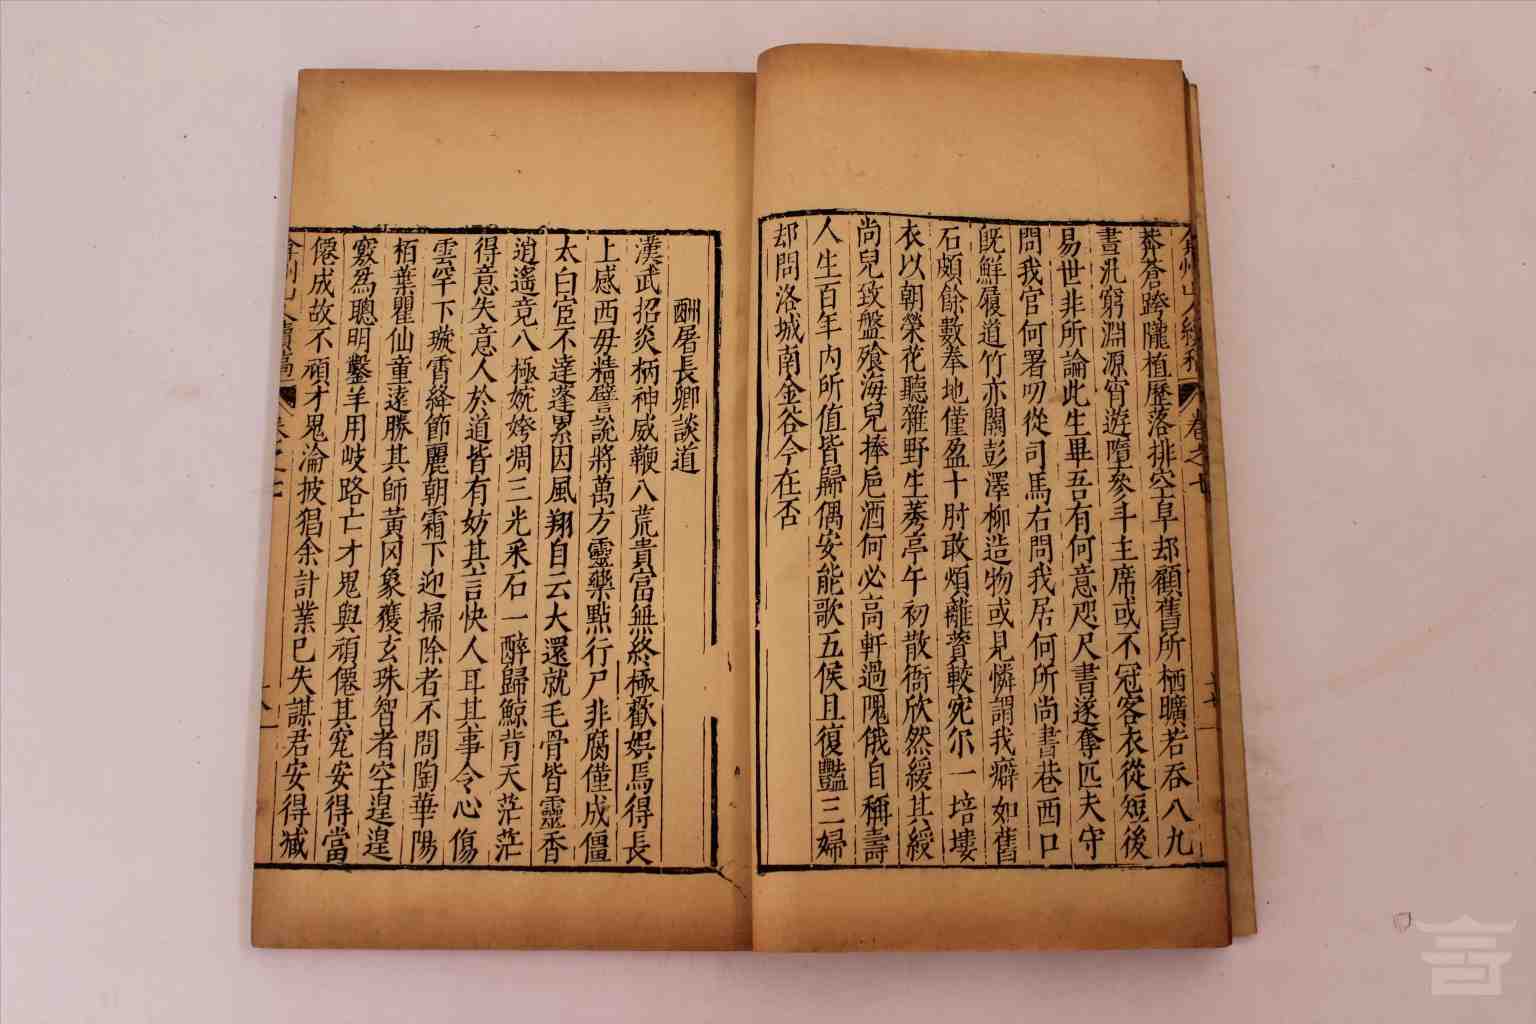 莽蒼跨隴植歷落排空阜却顧舊所栖曠若吞八九
晝汎窮淵源宵遊隨參斗主席或不冠客衣從短後
易世非所論此生畢吾有何意咫尺書遂奪匹夫守
問我官何署叨從司馬右問我居何所尚書巷西口
旣鮮履道竹亦闕彭澤柳造物或見憐謂我癖如舊
石頗餘數拳地僅盈十肘敢煩離蕢較宛尔一培塿
衣以朝榮花聽雜野生莠亭午初散衙欣然緩其綬
尚兒致盤飱海兒捧巵酒何必高軒過隗俄自稱壽
人生百年内所值皆歸偶安能歌五侯且復豔三婦
却問洛城南金谷今在否
酬屠長卿談道
漢武招炎柄神威鞭八荒貴富無終極歡娯焉得長
上感西毋精譬說將萬方靈藥㸃行尸非腐僅成僵
太白宦不達蓬累因風翔自云大還就毛骨皆靈香
逍遙竞八極姽婳凋三光采石一醉歸鯨背天茫茫
得意失意人於道皆有妨其言快人耳其事令心傷
雲罕下璇霄絳節麗朝霜下迎掃除者不問陶華陽
栢葉瞿仙童遠勝其師黃冈象獲玄珠智者空遑遑
竅爲聰明鑿羊用岐路亡才鬼與頑僊其究安得當
僊成故不頑才鬼淪披猖余計業已失謀君安得臧
弇州山人續稿
卷之七
十八